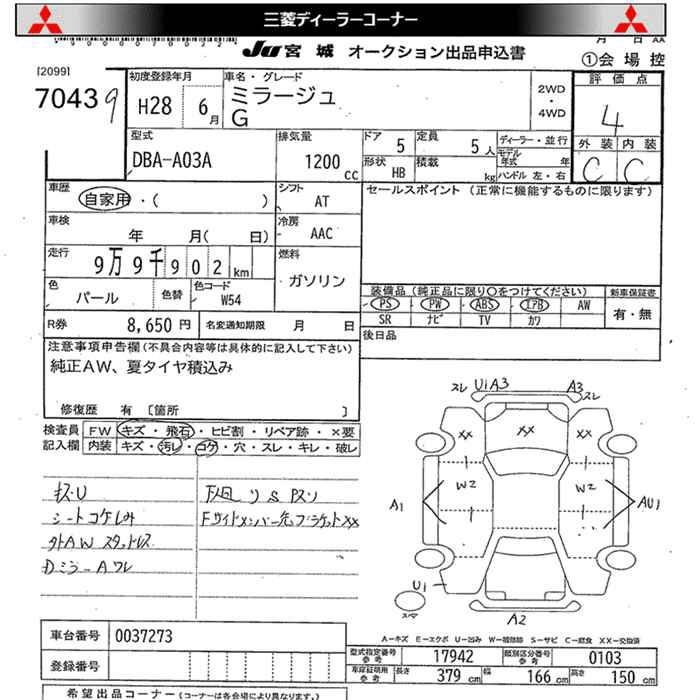 三菱ディーラーコーナー
JU 宮城 オークション出品申込書
①会場控
[2099]
70439
初度登録年月
H28 6月
車名・グレード
ミラージュ
G
2WD
・
4WD
評価点
4
外装 内装
C C
型式
DBA-A03A
排気量
1200 cc
ドア 5
定員 5人
形状 HB
積載 kg
ディーラー・並行
モデル年式 年
ハンドル 左・右
車歴
自家用・( )
シフト AT
セールスポイント (正常に機能するものに限ります)
車検
年 月( 日)
冷房 AAC
走行
9万9千902km
燃料
ガソリン
色
パール
色替
色コード
W54
装備品 (純正品に限り○をつけてください)
新車保証書
PS PW ABS エアB AW
SR ナビ TV カワ
有・無
R券 8,650円
名変通知期限 月 日
後日品
注意事項申告欄 (不具合内容等は具体的に記入して下さい)
純正AW、夏タイヤ積込み
修復歴 有 〔箇所 〕
検査員記入欄
FW キズ・飛石・ヒビ割・リペア跡・×要
内装 キズ・汚レ・コゲ・穴・スレ・キレ・破レ
キズU
シートコゲしみ
社外AWスタッドレス
Dミラーワレ
Fサイドメンバー先ブラケットXX
スレ UIA3 A3 スレ
XX XX XX
W2 W2
A1 AU1
U1
スマ
A2
A-キズ E-エクボ U-凹み W-補修跡 S-サビ C-腐食 XX-交換済
車台番号 0037273
登録番号
型式指定番号 参考 17942
類別区分番号 参考 0103
車庫証明用 参考 長さ 379 cm 幅 166 cm 高さ 150 cm
希望出品コーナー (コーナーは各会場により異なります。)